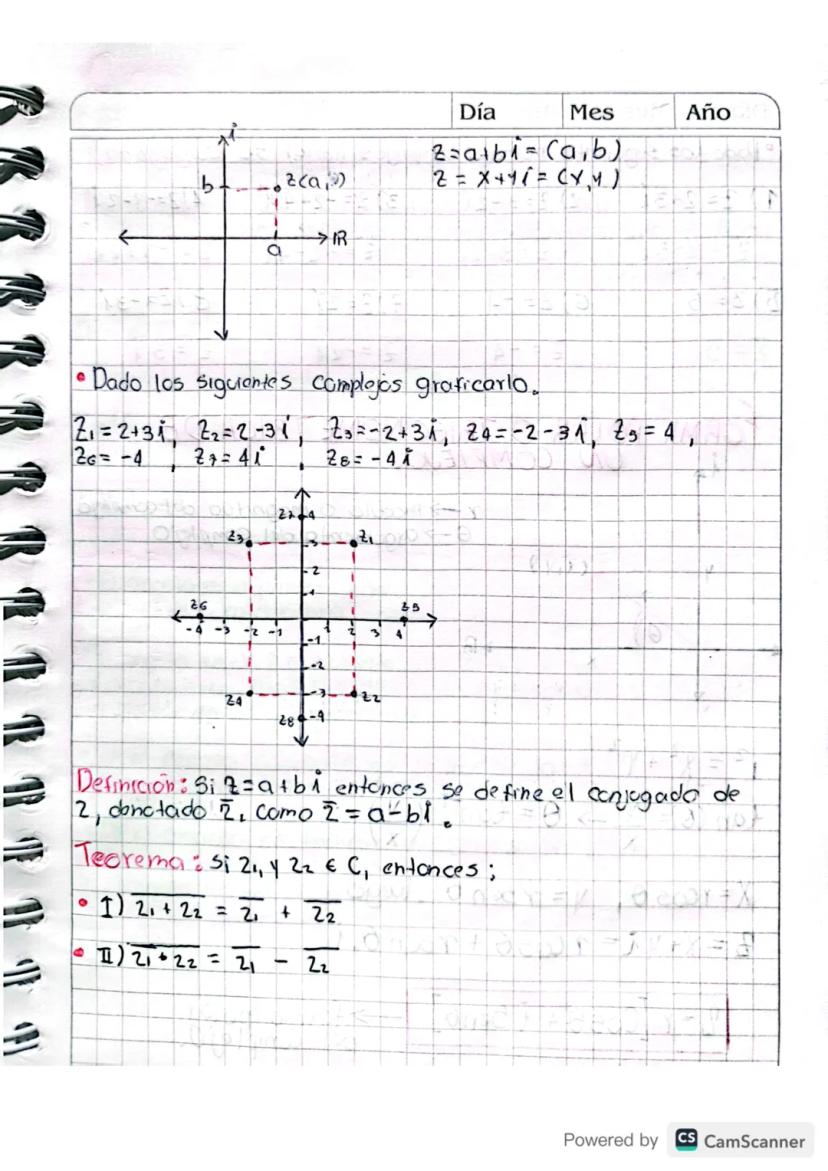 Día Mes Año
i
z=a+bi=(a,b)
b z(a,b)
z = x+yi=(x,y)
IR
a
• Dado los siguientes complejos graficarlo.
Z₁=2+3i, Z₂=2-3i, Z₃=-2+3i, Z4=-2-3i, Z5=4,
Z6=-4, Z7=4i, Z8=-4i
Z7 4
Z3 3 Z1
2
1
Z6 Z5
-4 -3 -2 -1 1 2 3 4
-1
-2
Z4 -3 Z2
Z8 -4
Definición: Si z=a+bi entonces se define el conjugado de
z, donotado z̄, como z̄ = a-bi.
Teorema: Si z₁, y z₂ ∈ C, entonces;
• I) \overline{z₁ + z₂} = \overline{z₁} + \overline{z₂}
• II) \overline{z₁ • z₂} = \overline{z₁} - \overline{z₂}
Powered by CS CamScanner